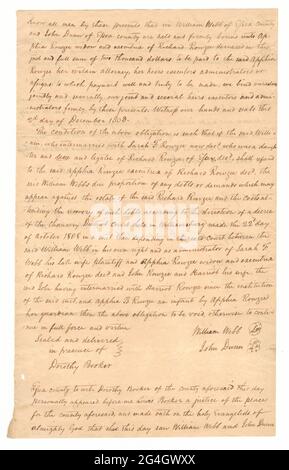 Know all men by these presents that we William Webb of Essex County
and John Duren of Essex county are held and firmly bound unto Ap-
phia Rouzee widow and executrix of Richard Rouzee deceased in the
just and full sum of two thousand dollars to be paid to the said Apphia
Rouzee her certain attorney her heirs executors administrators or
assigns to which payment well and truly to be made, we bind ourselves
jointly and severally our joint and several heirs executors and admin-
istrators firmly by these presents. Witness our hands and seals this
day of December 1808.
The condition of the above obligation is such that if the said Willi-
am, who intermarried with Sarah F Rouzee now decd. who was a daugh-
ter and legatee of Richard Rouzee of Essex decd. shall refund
to the said Apphia Rouzee executrix of Richard Rouzee decd. the
said William Webbs due proportion of any debts or demands which may
appear against the estate of the said Richard Rouzee and the costs at-
tending the recovery of such debts
of the chancery made the 22d.
of October 1806 in a suit then depending in the said court between the
said William Webb in his own right and as administrator of Sarah F
Webb his late wife plaintiff and Apphia Rouzee widow and executrix
of Richard Rouzee decd. and John Rouzee and Harriot his wife the
said John having intermarried with Harriot Rouzee since the institution
of the said suit, and Apphia Rouzee an infant by Apphia Rouzee
her guardian then the above obligation to be void otherwise to conti-
nue in full force and virtue
William Webb
Sealed and delivered
John Duren
in presence of
Dorothy Booker
Essex County to wit Dorothy Booker of the County aforesaid this day
personally appeared before me Lewis Booker a justice of the peace
for the county aforesaid and made oath on the holy Evangelists of
almighty God that she this day saw William Webb and John Duren
alamy
2C4GWXX